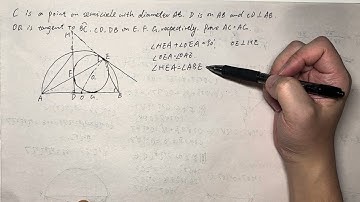 C is a point on semicircle with diameter AB. D is on AB and CD⊥AB.
is tangent to BC. CD. DB on E. F. G, respectively. Prove AC=AG.
∠HEA+∠OEA=90° OE⊥HE
∠OEA=∠OAE
∠HEA=∠ABE
H
C
E
F
Q
A
D
O
G
B